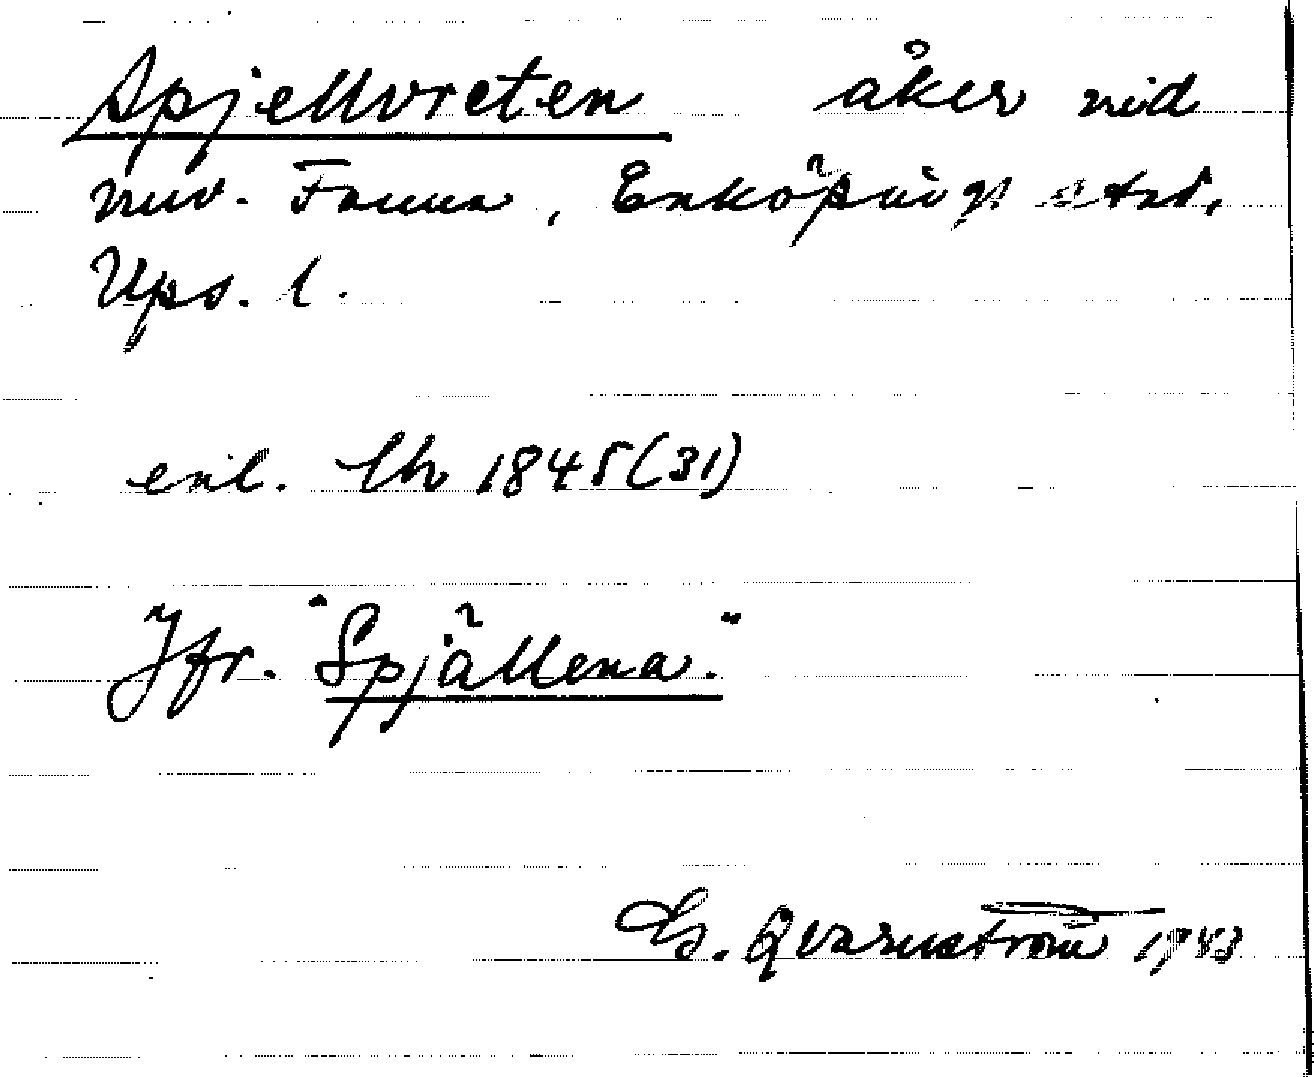 Spjellvreten åker vid
nuv. Fanna, Enköpings stad,
Ups. l.
enl. Lh 1845 (31)
Jfr. "Spjällena."
G. Qvarnström 1943